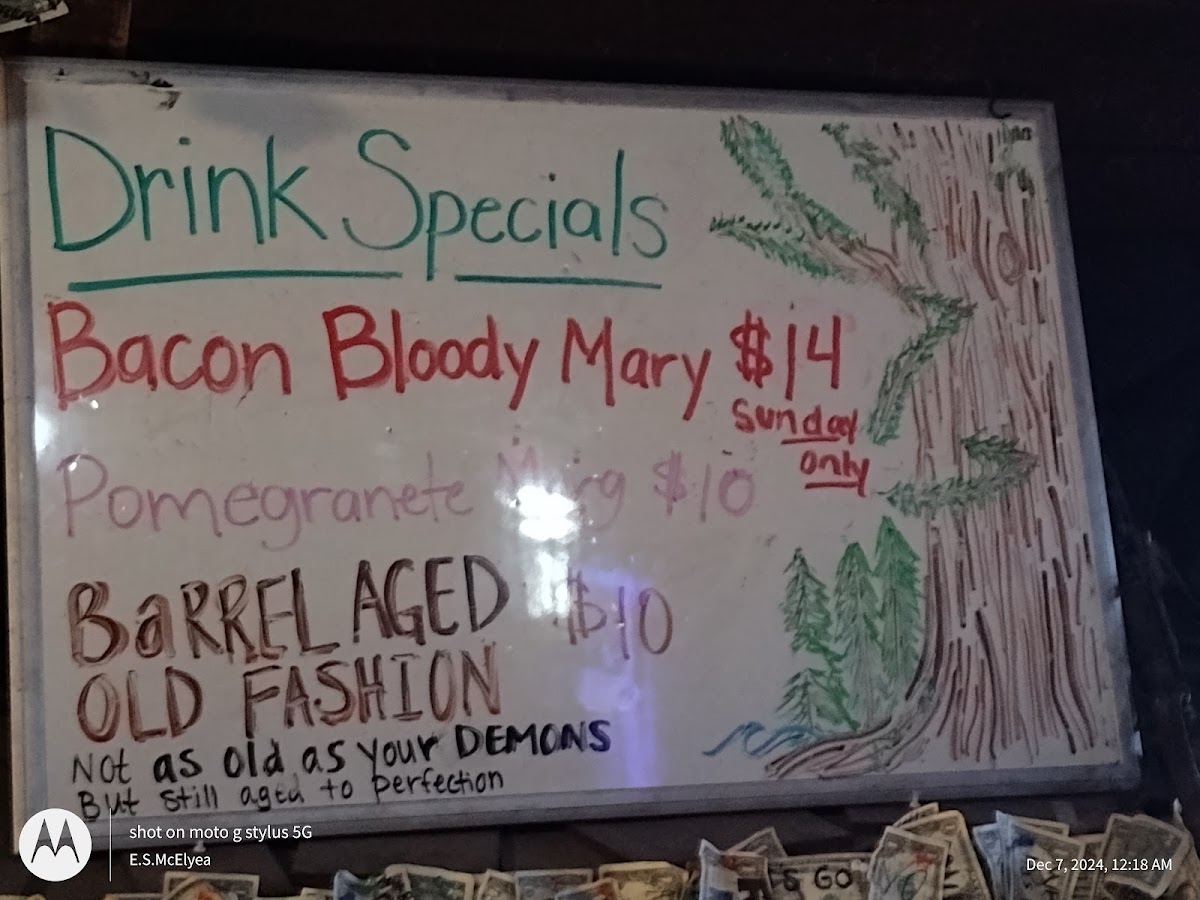 Drink Specials
Bacon Bloody Mary $14
Sunday
only
Pomegranete Marg $10
BaRREL AGED $10
OLD FASHION
Not as old as your DEMONS
But still aged to perfection
shot on moto g stylus 5G
E.S.McElyea
Dec 7, 2024, 12:18 AM
GO